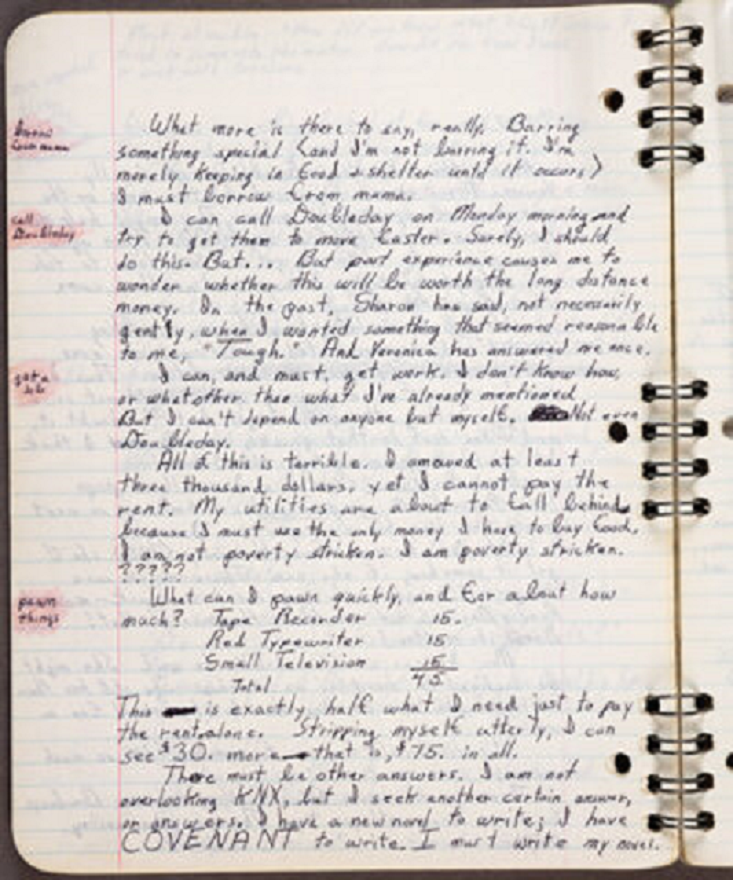 borrow
from mama
What more is there to say, really. Barring
something special (and I'm not barring it. I'm
merely keeping in food & shelter until it occurs)
I must borrow from mama.
call
Doubleday
I can call Doubleday on Monday morning and
try to get them to move faster. Surely, I should
do this. But... But past experience causes me to
wonder whether this will be worth the long distance
money. In the past, Sharon has said, not necessarily
gently, when I wanted something that seemed reasonable
to me, "Tough." And Veronica has answered me once.
get a
job
I can, and must, get work. I don't know how,
or what other than what I've already mentioned.
But I can't depend on anyone but myself. Not even
Doubleday.
All of this is terrible. I am owed at least
three thousand dollars, yet I cannot pay the
rent. My utilities are about to fall behind
because I must use the only money I have to buy food.
I am not poverty stricken. I am poverty stricken.
?????
pawn
things
What can I pawn quickly, and for about how
much? Tape Recorder 15.
Red Typewriter 15
Small Television 15
Total 45
This is exactly half what I need just to pay
the rent alone. Stripping myself utterly, I can
see $30. more—that is, $75. in all.
There must be other answers. I am not
overlooking KNX, but I seek another certain answer,
or answers. I have a new novel to write; I have
COVENANT to write. I must write my novel.